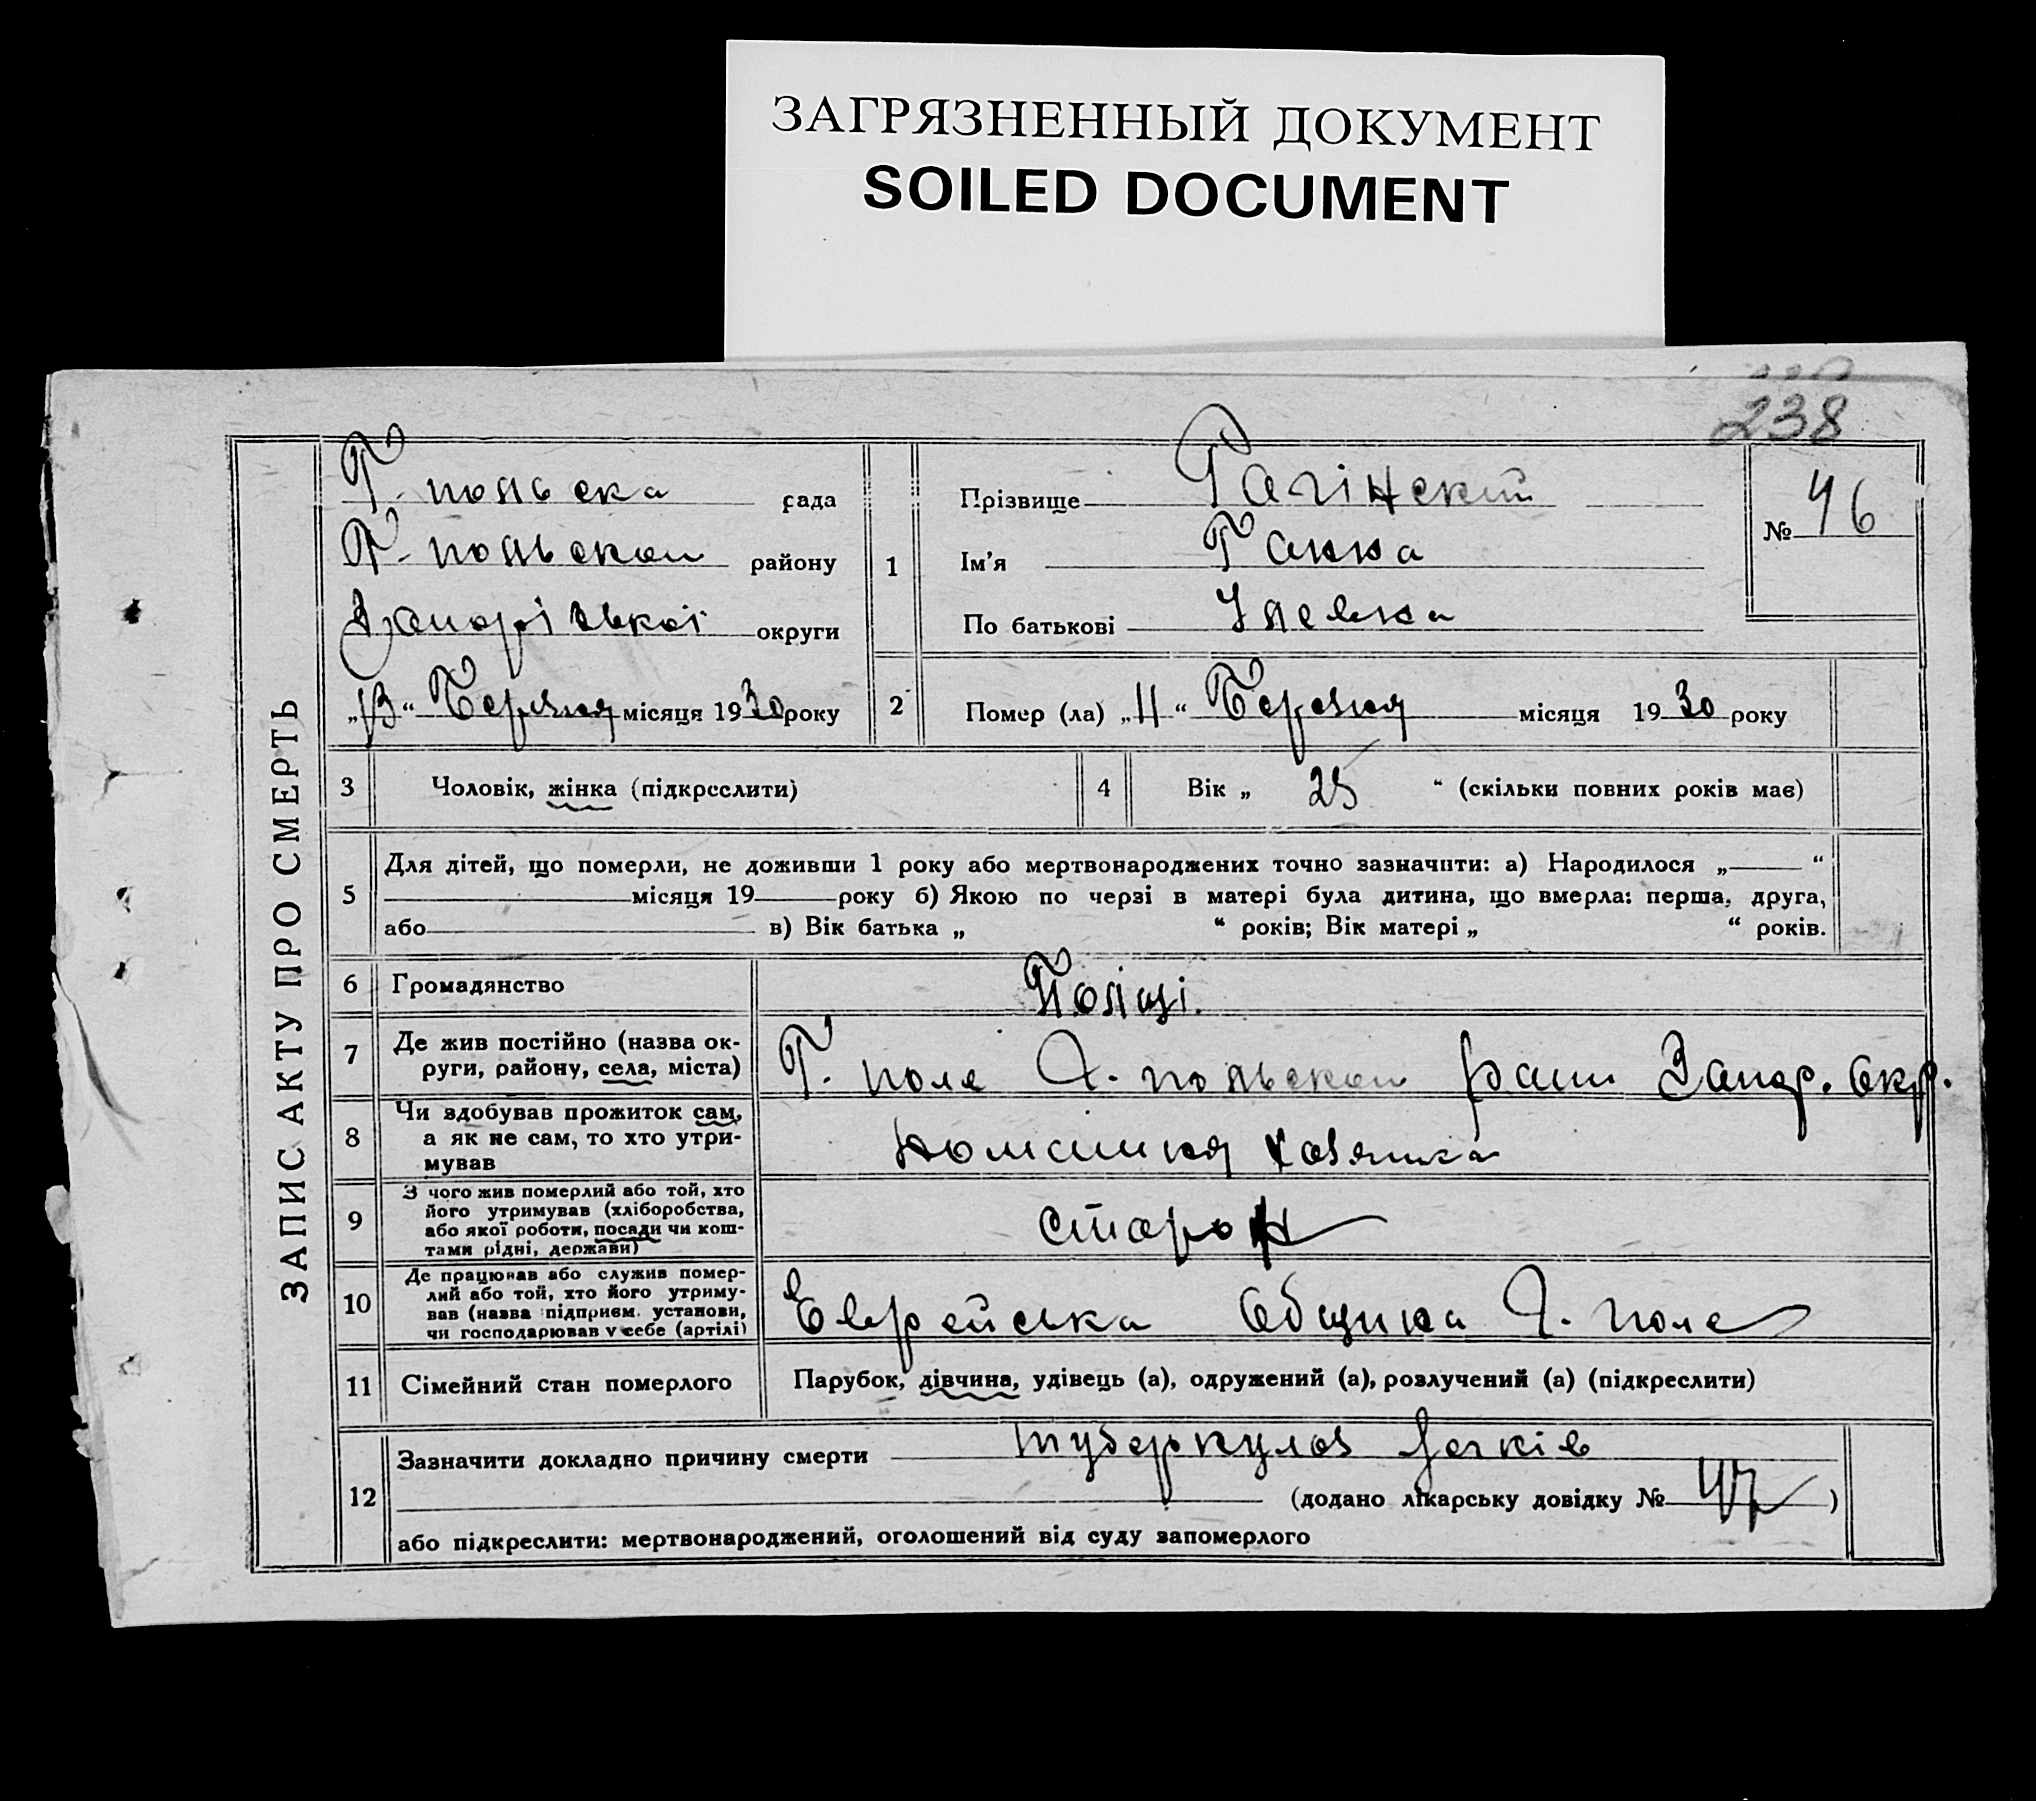 ЗАГРЯЗНЕННЫЙ ДОКУМЕНТ
SOILED DOCUMENT
238
ЗАПИС АКТУ ПРО СМЕРТЬ
Г. польска рада
Г. польскои району
Запорізької округи
„13“ Березня місяця 1930 року
№ 46
1 Прізвище Рагінский
Ім'я Ганна
По батькові
2 Помер (ла) „11“ Березня місяця 1930 року
3 Чоловік, жінка (підкреслити)
4 Вік „ 25 “ (скільки повних років має)
5 Для дітей, що померли, не доживши 1 року або мертвонароджених точно зазначити: а) Народилося „ “
місяця 19 року б) Якою по черзі в матері була дитина, що вмерла: перша, друга,
або в) Вік батька „ “ років; Вік матері „ “ років.
6 Громадянство
7 Де жив постійно (назва ок-
руги, району, села, міста)
Г. поле Г. польскои Запор. окр.
8 Чи здобував прожиток сам,
а як не сам, то хто утри-
мував
9 З чого жив померлий або той, хто
його утримував (хліборобства,
або якої роботи, посади чи кош-
тами рідні, держави)
10 Де працював або служив помер-
лий або той, хто його утриму-
вав (назва підприєм. установи,
чи господарював у себе (артілі)
Еврейська Община Г. поле
11 Сімейний стан померлого
Парубок, дівчина, удівець (а), одружений (а), розлучений (а) (підкреслити)
12 Зазначити докладно причину смерти туберкулоз легків
(додано лікарську довідку № 47 )
або підкреслити: мертвонароджений, оголошений від суду запомерлого